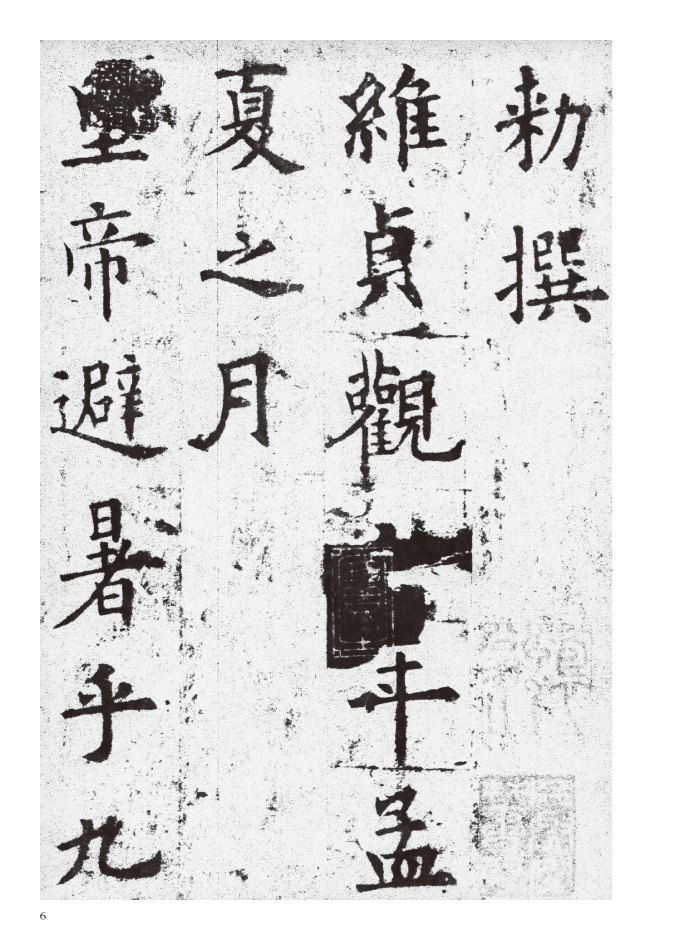 勑撰
維貞觀年孟
夏之月
皇帝避暑乎九
6